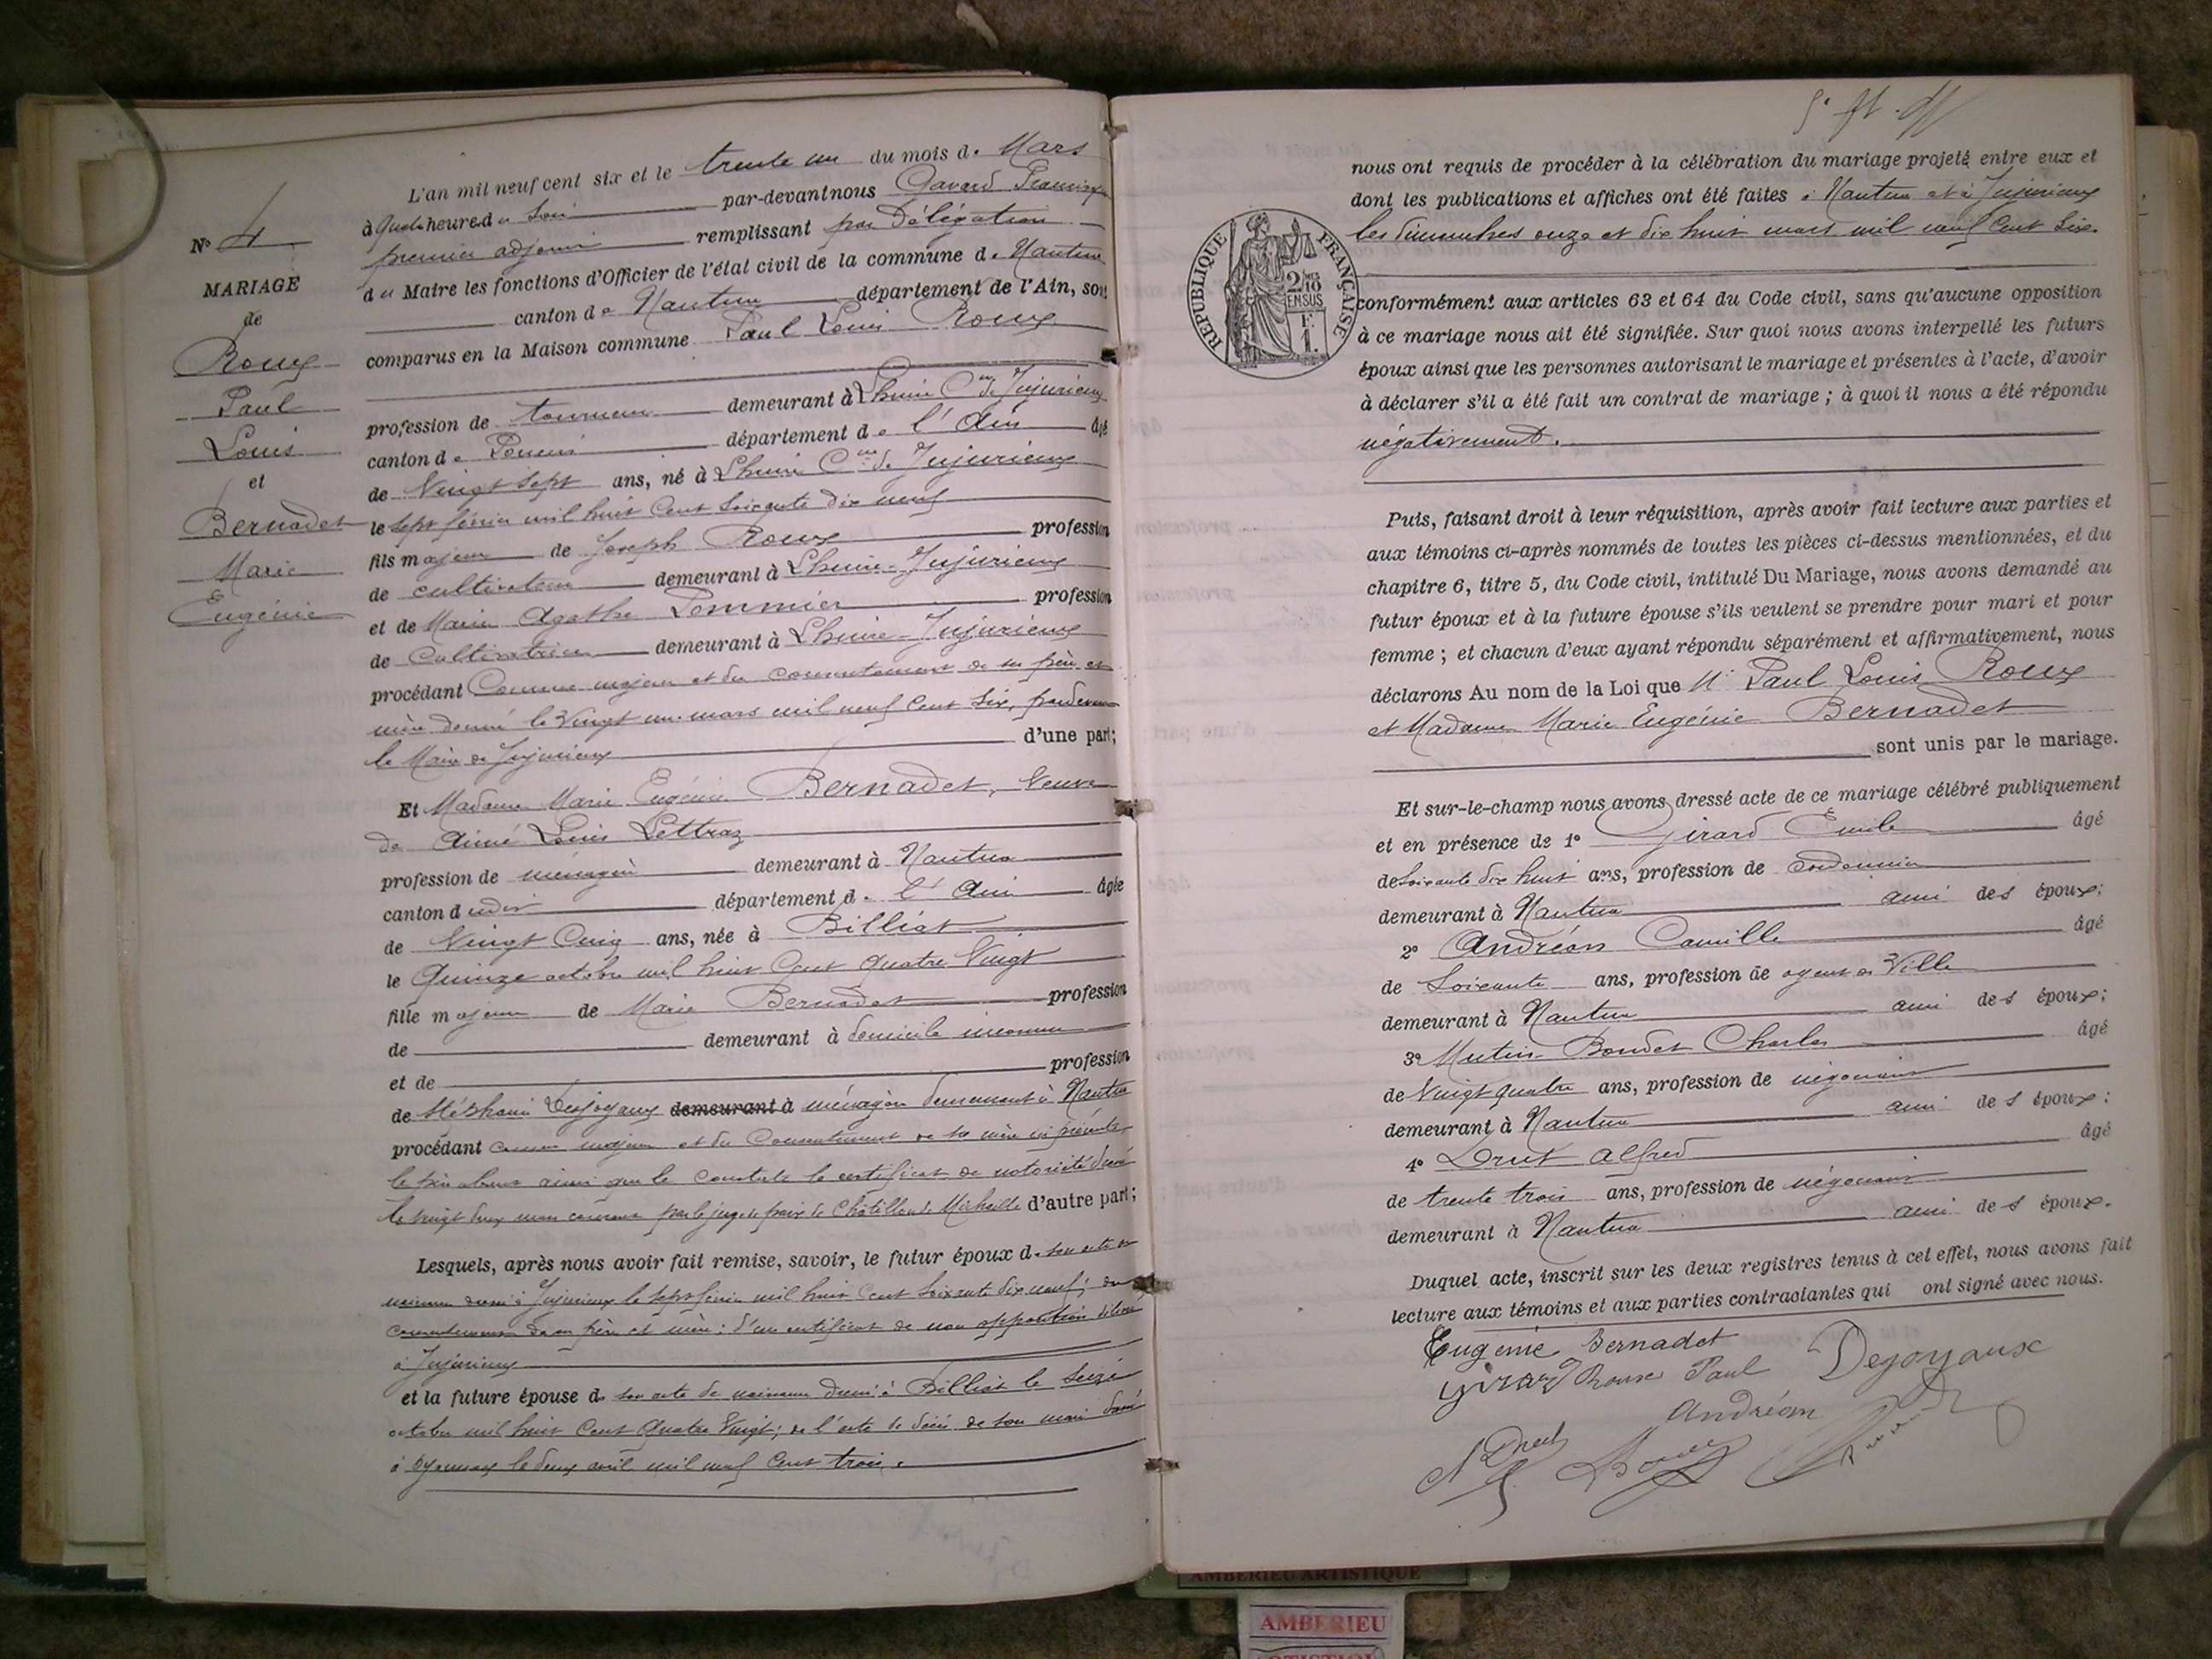 N° 4
MARIAGE
de
Roux
Paul
Louis
et
Bernadet
Marie
Eugénie
L'an mil neuf cent six et le trente un du mois de Mars
à heure du soir par-devant nous Gavard
premier adjoint remplissant par Délégation
du Maire les fonctions d'Officier de l'état civil de la commune de Nantua
canton de Nantua département de l'Ain, sont
comparus en la Maison commune Paul Louis Roux
profession de tourneur demeurant à Lhuire Cne de Jujurieux
canton de Poncin département de l'Ain âgé
de Vingt sept ans, né à Lhuire Cne de Jujurieux
le sept février mil huit Cent soixante dix neuf
fils majeur de Joseph Roux profession
de cultivateur demeurant à Lhuire-Jujurieux
et de Marie Agathe Pommier profession
de Cultivatrice demeurant à Lhuire-Jujurieux
procédant Comme majeur et du consentement de ses père et
mère donné le Vingt un mars mil neuf Cent Six, pardevant
le Maire de Jujurieux d'une part;
Et Madame Marie Eugénie Bernadet, Veuve
de Aimé Louis Lettraz
profession de ménagère demeurant à Nantua
canton dudit département de l'Ain âgée
de Vingt Cinq ans, née à Billiat
le Quinze octobre mil huit Cent Quatre Vingt
fille majeure de Marie Bernadet profession
de demeurant à domicile inconnu
et de profession
de Stéphanie Dejoyaux demeurant à ménagère demeurant à Nantua
procédant comme majeure et du Consentement de sa mère ici présente
le père absent ainsi que le constate le certificat de notoriété dressé
le vingt deux mars courant par le juge de paix de Châtillon de Michaille d'autre part;
Lesquels, après nous avoir fait remise, savoir, le futur époux de son acte de
naissance dressé à Jujurieux le sept février mil huit Cent soixante dix neuf; du
consentement de ses père et mère; d'un certificat de non opposition délivré
à Jujurieux
et la future épouse de son acte de naissance dressé à Billiat le Seize
octobre mil huit Cent Quatre Vingt; de l'acte de décès de son mari dressé
à Oyonnax le deux avril mil neuf Cent trois.
nous ont requis de procéder à la célébration du mariage projeté entre eux et
dont les publications et affiches ont été faites à Nantua et à Jujurieux
les dimanches onze et dix huit mars mil neuf Cent Six.
RÉPUBLIQUE FRANÇAISE
2/10
EN SUS
F.
1.
conformément aux articles 63 et 64 du Code civil, sans qu'aucune opposition
à ce mariage nous ait été signifiée. Sur quoi nous avons interpellé les futurs
époux ainsi que les personnes autorisant le mariage et présentes à l'acte, d'avoir
à déclarer s'il a été fait un contrat de mariage; à quoi il nous a été répondu
négativement.
Puis, faisant droit à leur réquisition, après avoir fait lecture aux parties et
aux témoins ci-après nommés de toutes les pièces ci-dessus mentionnées, et du
chapitre 6, titre 5, du Code civil, intitulé Du Mariage, nous avons demandé au
futur époux et à la future épouse s'ils veulent se prendre pour mari et pour
femme; et chacun d'eux ayant répondu séparément et affirmativement, nous
déclarons Au nom de la Loi que Mr Paul Louis Roux
et Madame Marie Eugénie Bernadet
sont unis par le mariage.
Et sur-le-champ nous avons dressé acte de ce mariage célébré publiquement
et en présence de 1° Girard Emile âgé
de Soixante dix huit ans, profession de cordonnier
demeurant à Nantua ami des époux;
2° Andréan Camille âgé
de Soixante ans, profession de agent de Ville
demeurant à Nantua ami des époux;
3° Mutin-Boudet Charles âgé
de Vingt quatre ans, profession de négociant
demeurant à Nantua ami des époux;
4° Drut Alfred âgé
de trente trois ans, profession de négociant
demeurant à Nantua ami des époux.
Duquel acte, inscrit sur les deux registres tenus à cet effet, nous avons fait
lecture aux témoins et aux parties contractantes qui ont signé avec nous.
Eugénie Bernadet
Girard Roux Paul Dejoyaux
Andréan
A Drut
AMBERIEU ARTISTIQUE
AMBERIEU